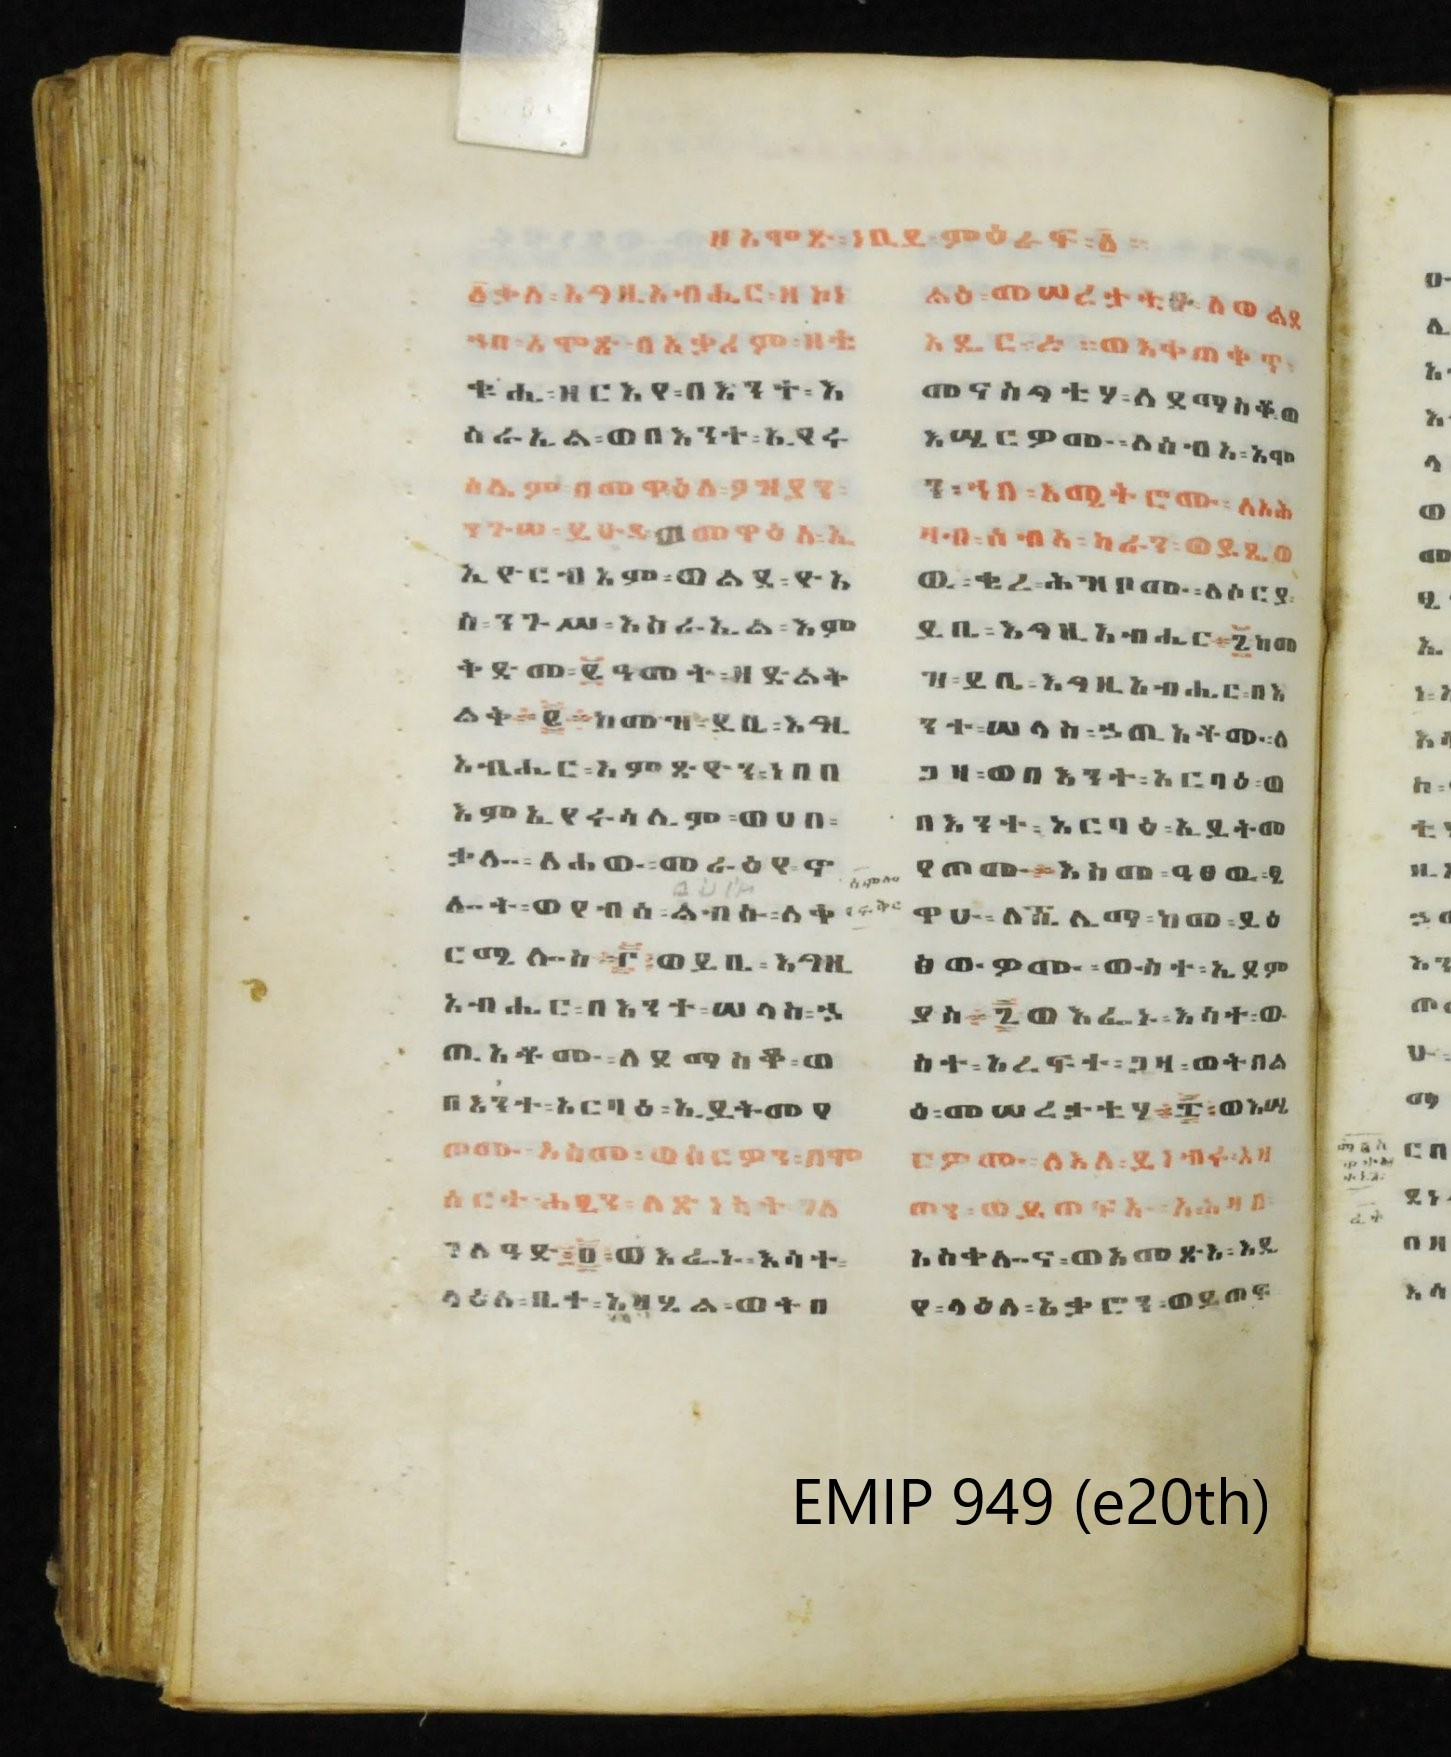 ዘአሞጽ፡ነቢይ፡ምዕራፍ፡፩፡
፩ቃለ፡እግዚአብሔር፡ዘኮነ
ኀበ፡አሞጽ፡በአቃሪም፡ዘቲ
ቁሔ፡ዘርእየ፡በእንተ፡እ
ስራኤል፡ወበእንተ፡ኢየሩ
ሳሌም፡በመዋዕለ፡ዖዝያን፡
ንጉሠ፡ይሁዳ፡ወመዋዕለ፡ኢ
ኢዮርብአም፡ወልደ፡ዮአ
ስ፡ንጉሠ፡እስራኤል፡እም
ቅድመ፡፪ዓመት፡ዘድልቅ
ልቅ፡፪፡ከመዝ፡ይቤ፡እግዚ
አብሔር፡እምጽዮን፡ነበበ
እምኢየሩሳሌም፡ወሀበ፡
ቃሎ፡ለሐወ፡መራዕየ፡ኖ
ሎት፡ወየብሰ፡ልብሱ፡ለቀ
ርሜሎስ፡፫፡ወይቤ፡እግዚ
አብሔር፡በእንተ፡ሠላስ፡ኃ
ጢአቶሙ፡ለደማስቆ፡ወ
በእንተ፡አርባዕ፡ኢይትመየ
ጦሙ፡እስመ፡ወሰርዎን፡በሞ
ሰርተ፡ሐፂን፡ለጽኑሳት፡ገለ
ገለዓድ፡፬፡ወእፌኑ፡እሳተ፡
ላዕለ፡ቤተ፡አዛሄል፡ወትበ
ልዕ፡መሠረታቲሁ፡ለወልደ
አዴር፡ራ፡፡ወእቀጠቅጥ፡
መናስግቲሃ፡ለደማስቆ፡ወ
እሤርዎሙ፡ለሰብአ፡አሞ
ን፡ኀበ፡አሜትሮሙ፡ለአሕ
ዛብ፡ሰብአ፡ካራን፡ወይጼወ
ው፡ቂረ፡ሕዝቦሙ፡ለሶርያ፡
ይቤ፡እግዚአብሔር፡፯ከመ
ዝ፡ይቤ፡እግዚአብሔር፡በእ
ንተ፡ሠላስ፡ኃጢአቶሙ፡ለ
ጋዛ፡ወበእንተ፡አርባዕ፡ወ
በእንተ፡አርባዕ፡ኢይትመ
የጦሙ፡እስመ፡ዓፀዉ፡ፄ
ዋሁ፡ለሸሊማ፡ከመ፡ይዕ
ፅውዎሙ፡ውስተ፡ኢዶም
ያስ፡፯ወእፌኑ፡እሳተ፡ው
ስተ፡አረፍተ፡ጋዛ፡ወትበል
ዕ፡መሠረታቲሃ፡፰፡ወእሤ
ርዎሙ፡ለእለ፡ይነብሩ፡አዛ
ጦን፡ወይጠፍኡ፡አሕዛበ፡
አስቀሎና፡ወአመጽእ፡እዴ
የ፡ላዕለ፡አቃሮን፡ወይጠፍ
EMIP 949 (e20th)